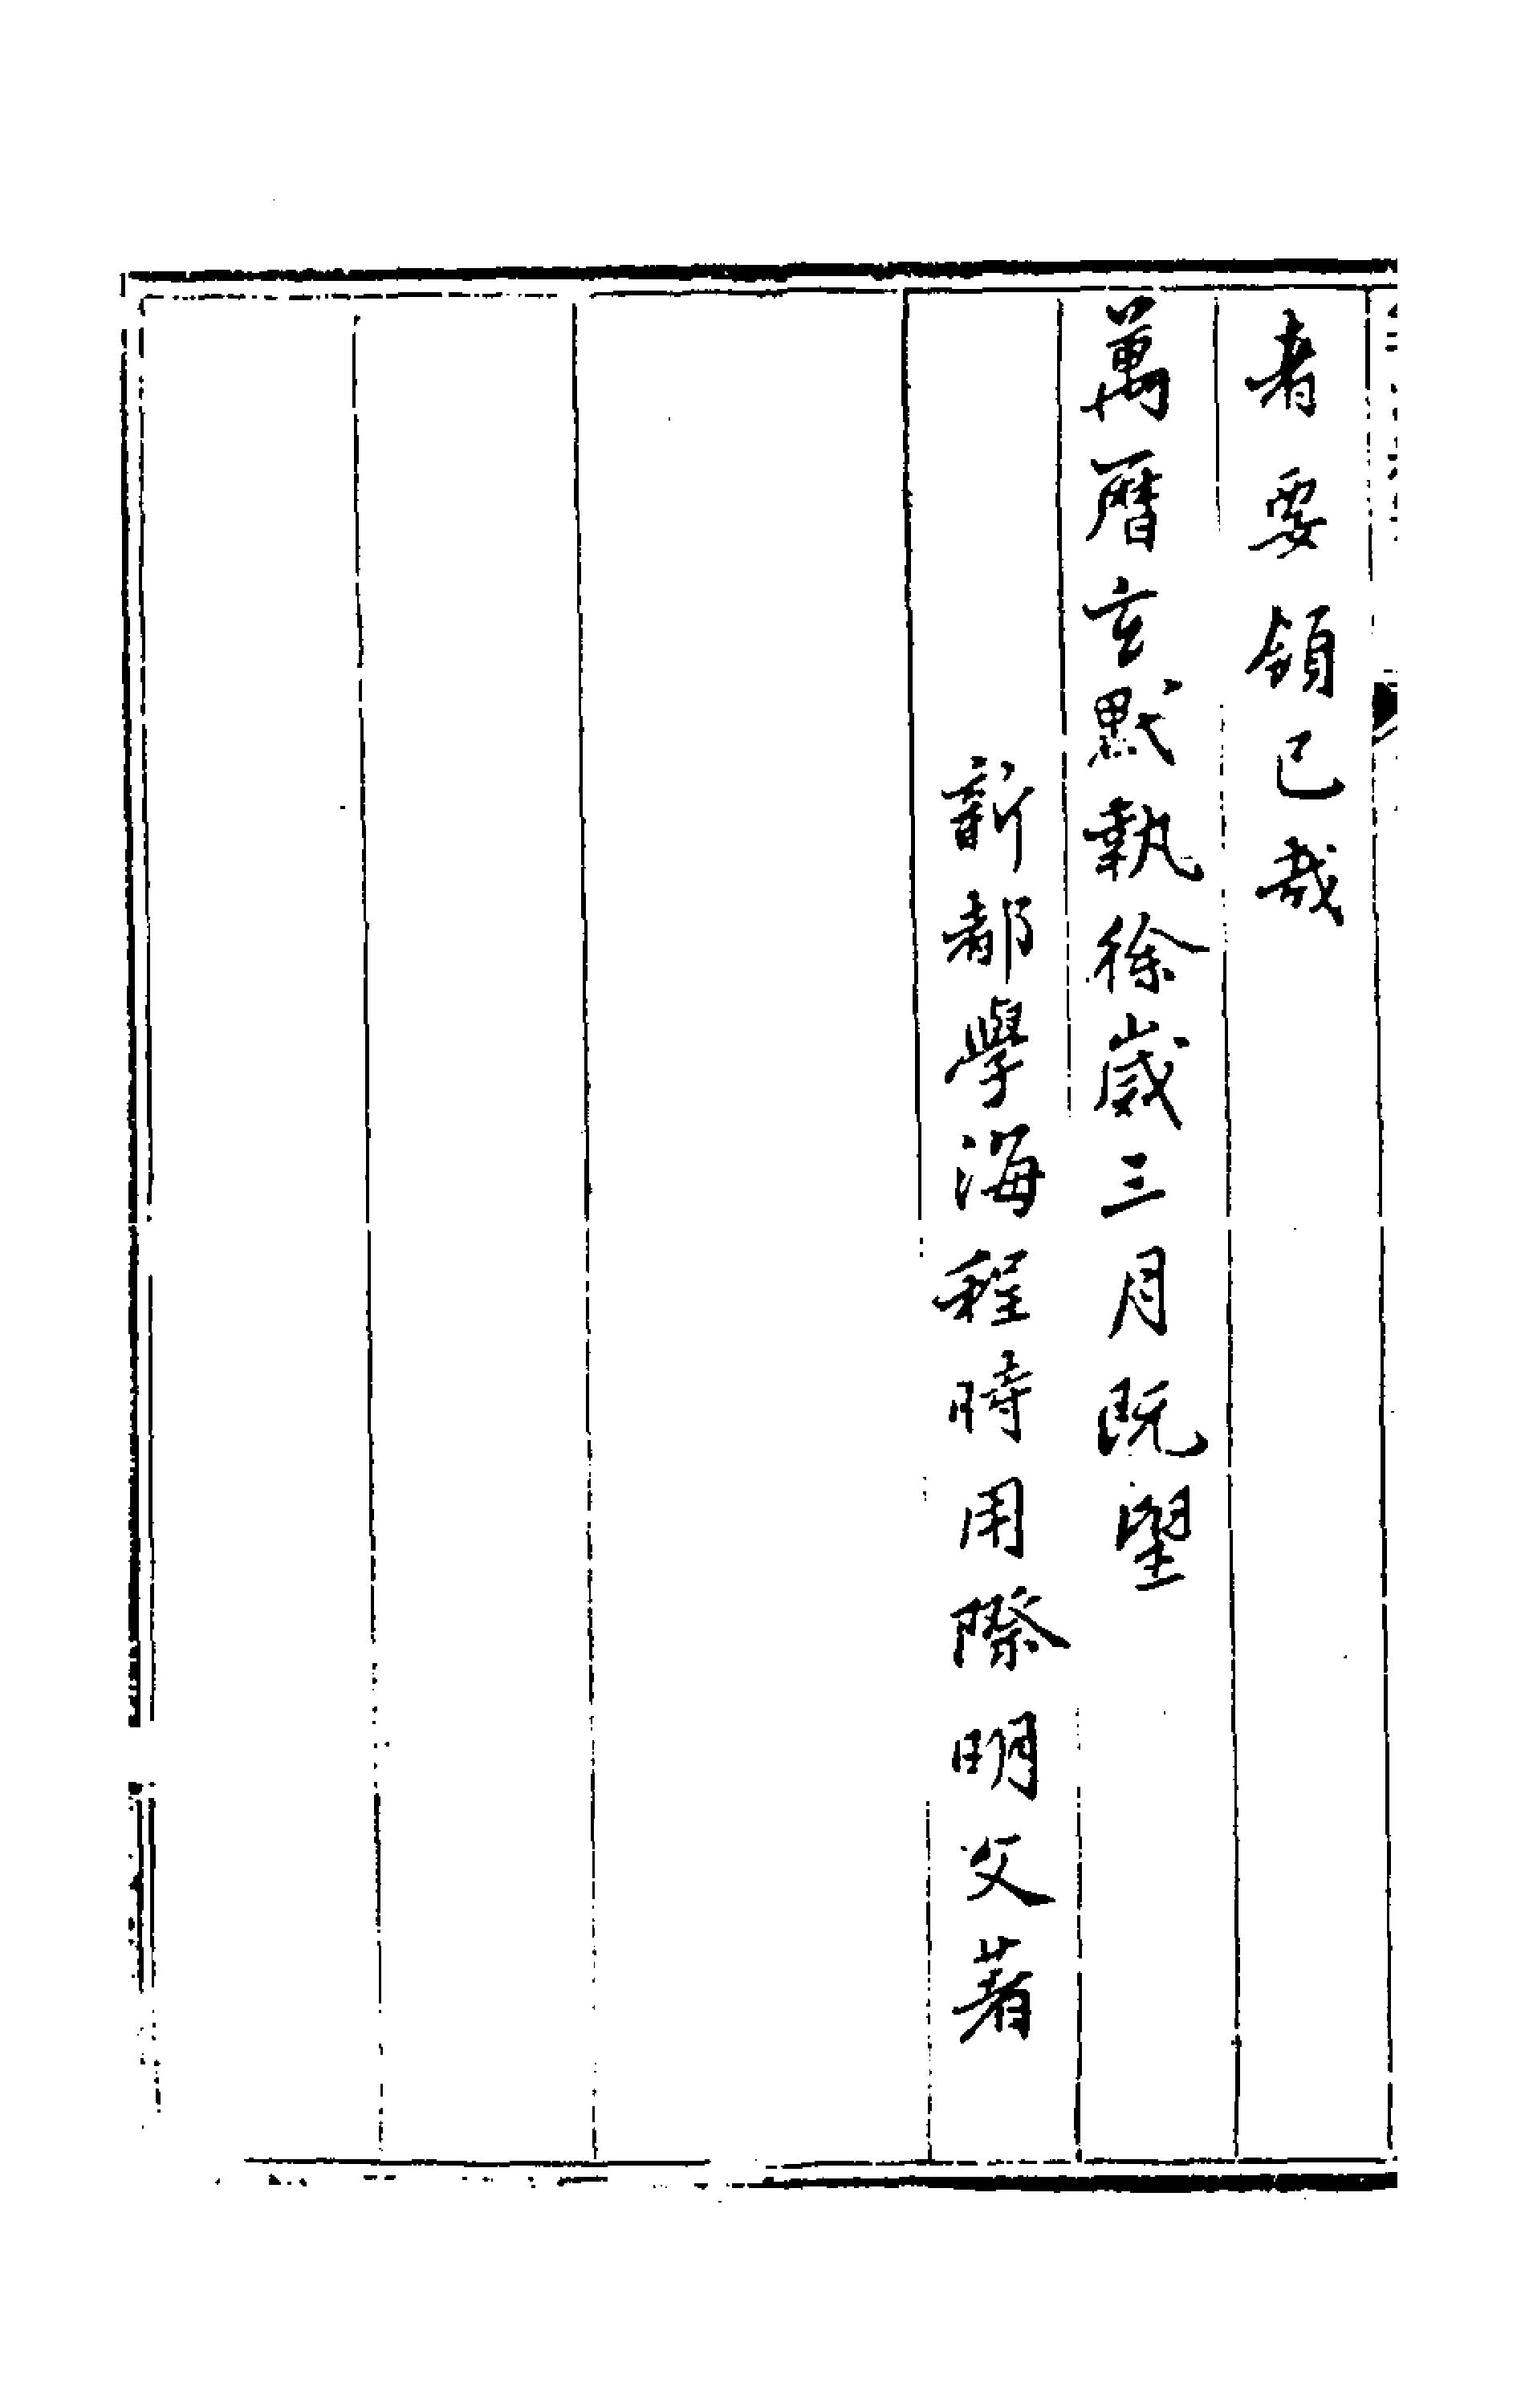 者要領已哉
萬曆玄黓執徐歲三月既望
新都學海程時用際明父著